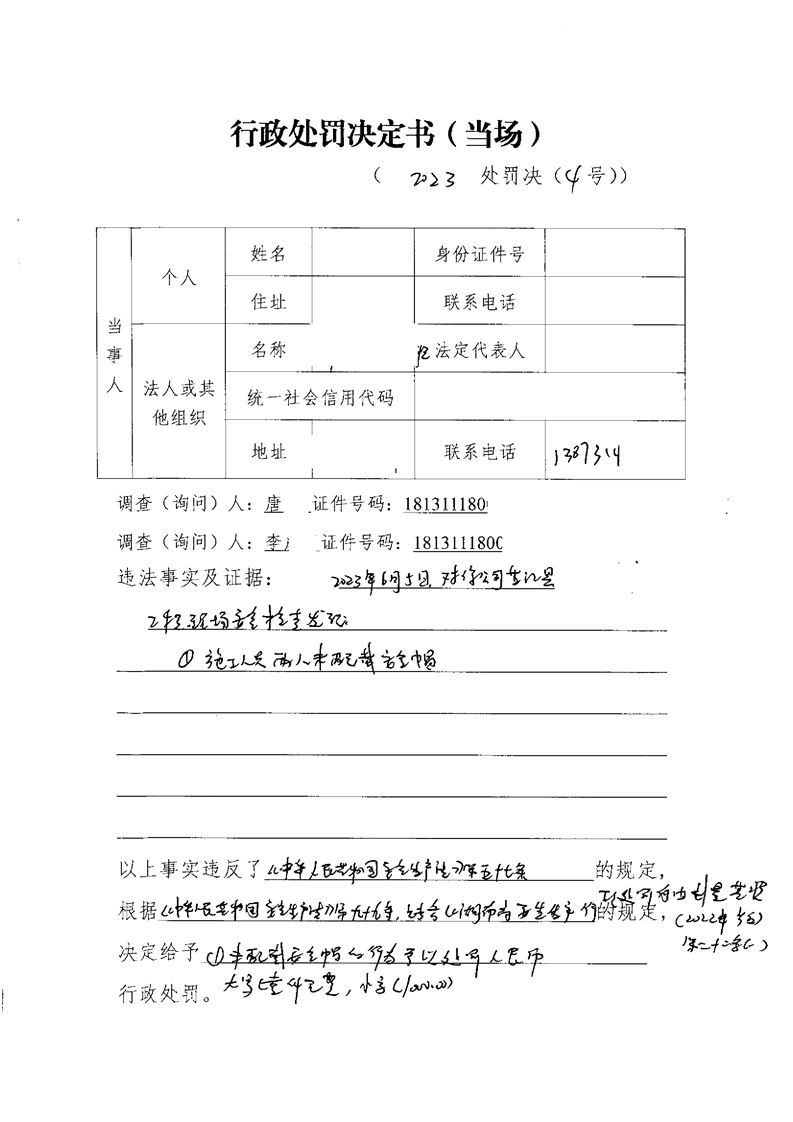 行政处罚决定书（当场）
（ 2023 处罚决（4号））
当事人
个人
姓名
身份证件号
住址
联系电话
法人或其他组织
名称
法定代表人
统一社会信用代码
地址
联系电话 1387314
调查（询问）人：唐 证件号码：181311180
调查（询问）人：李 证件号码：1813111800
违法事实及证据： 2023年6月5日，对你公司
现场安全检查发现
① 施工人员两人未配戴安全帽
以上事实违反了《中华人民共和国安全生产法》第五十七条 的规定，
根据《中华人民共和国安全生产法》第九十九条，结合《湖南省安全生产行政处罚自由裁量基准 的规定，
（2022年
第二十二条
决定给予 ①未配戴安全帽的行为予以处罚人民币
行政处罚。 大写壹仟元整，小写（1000.00）